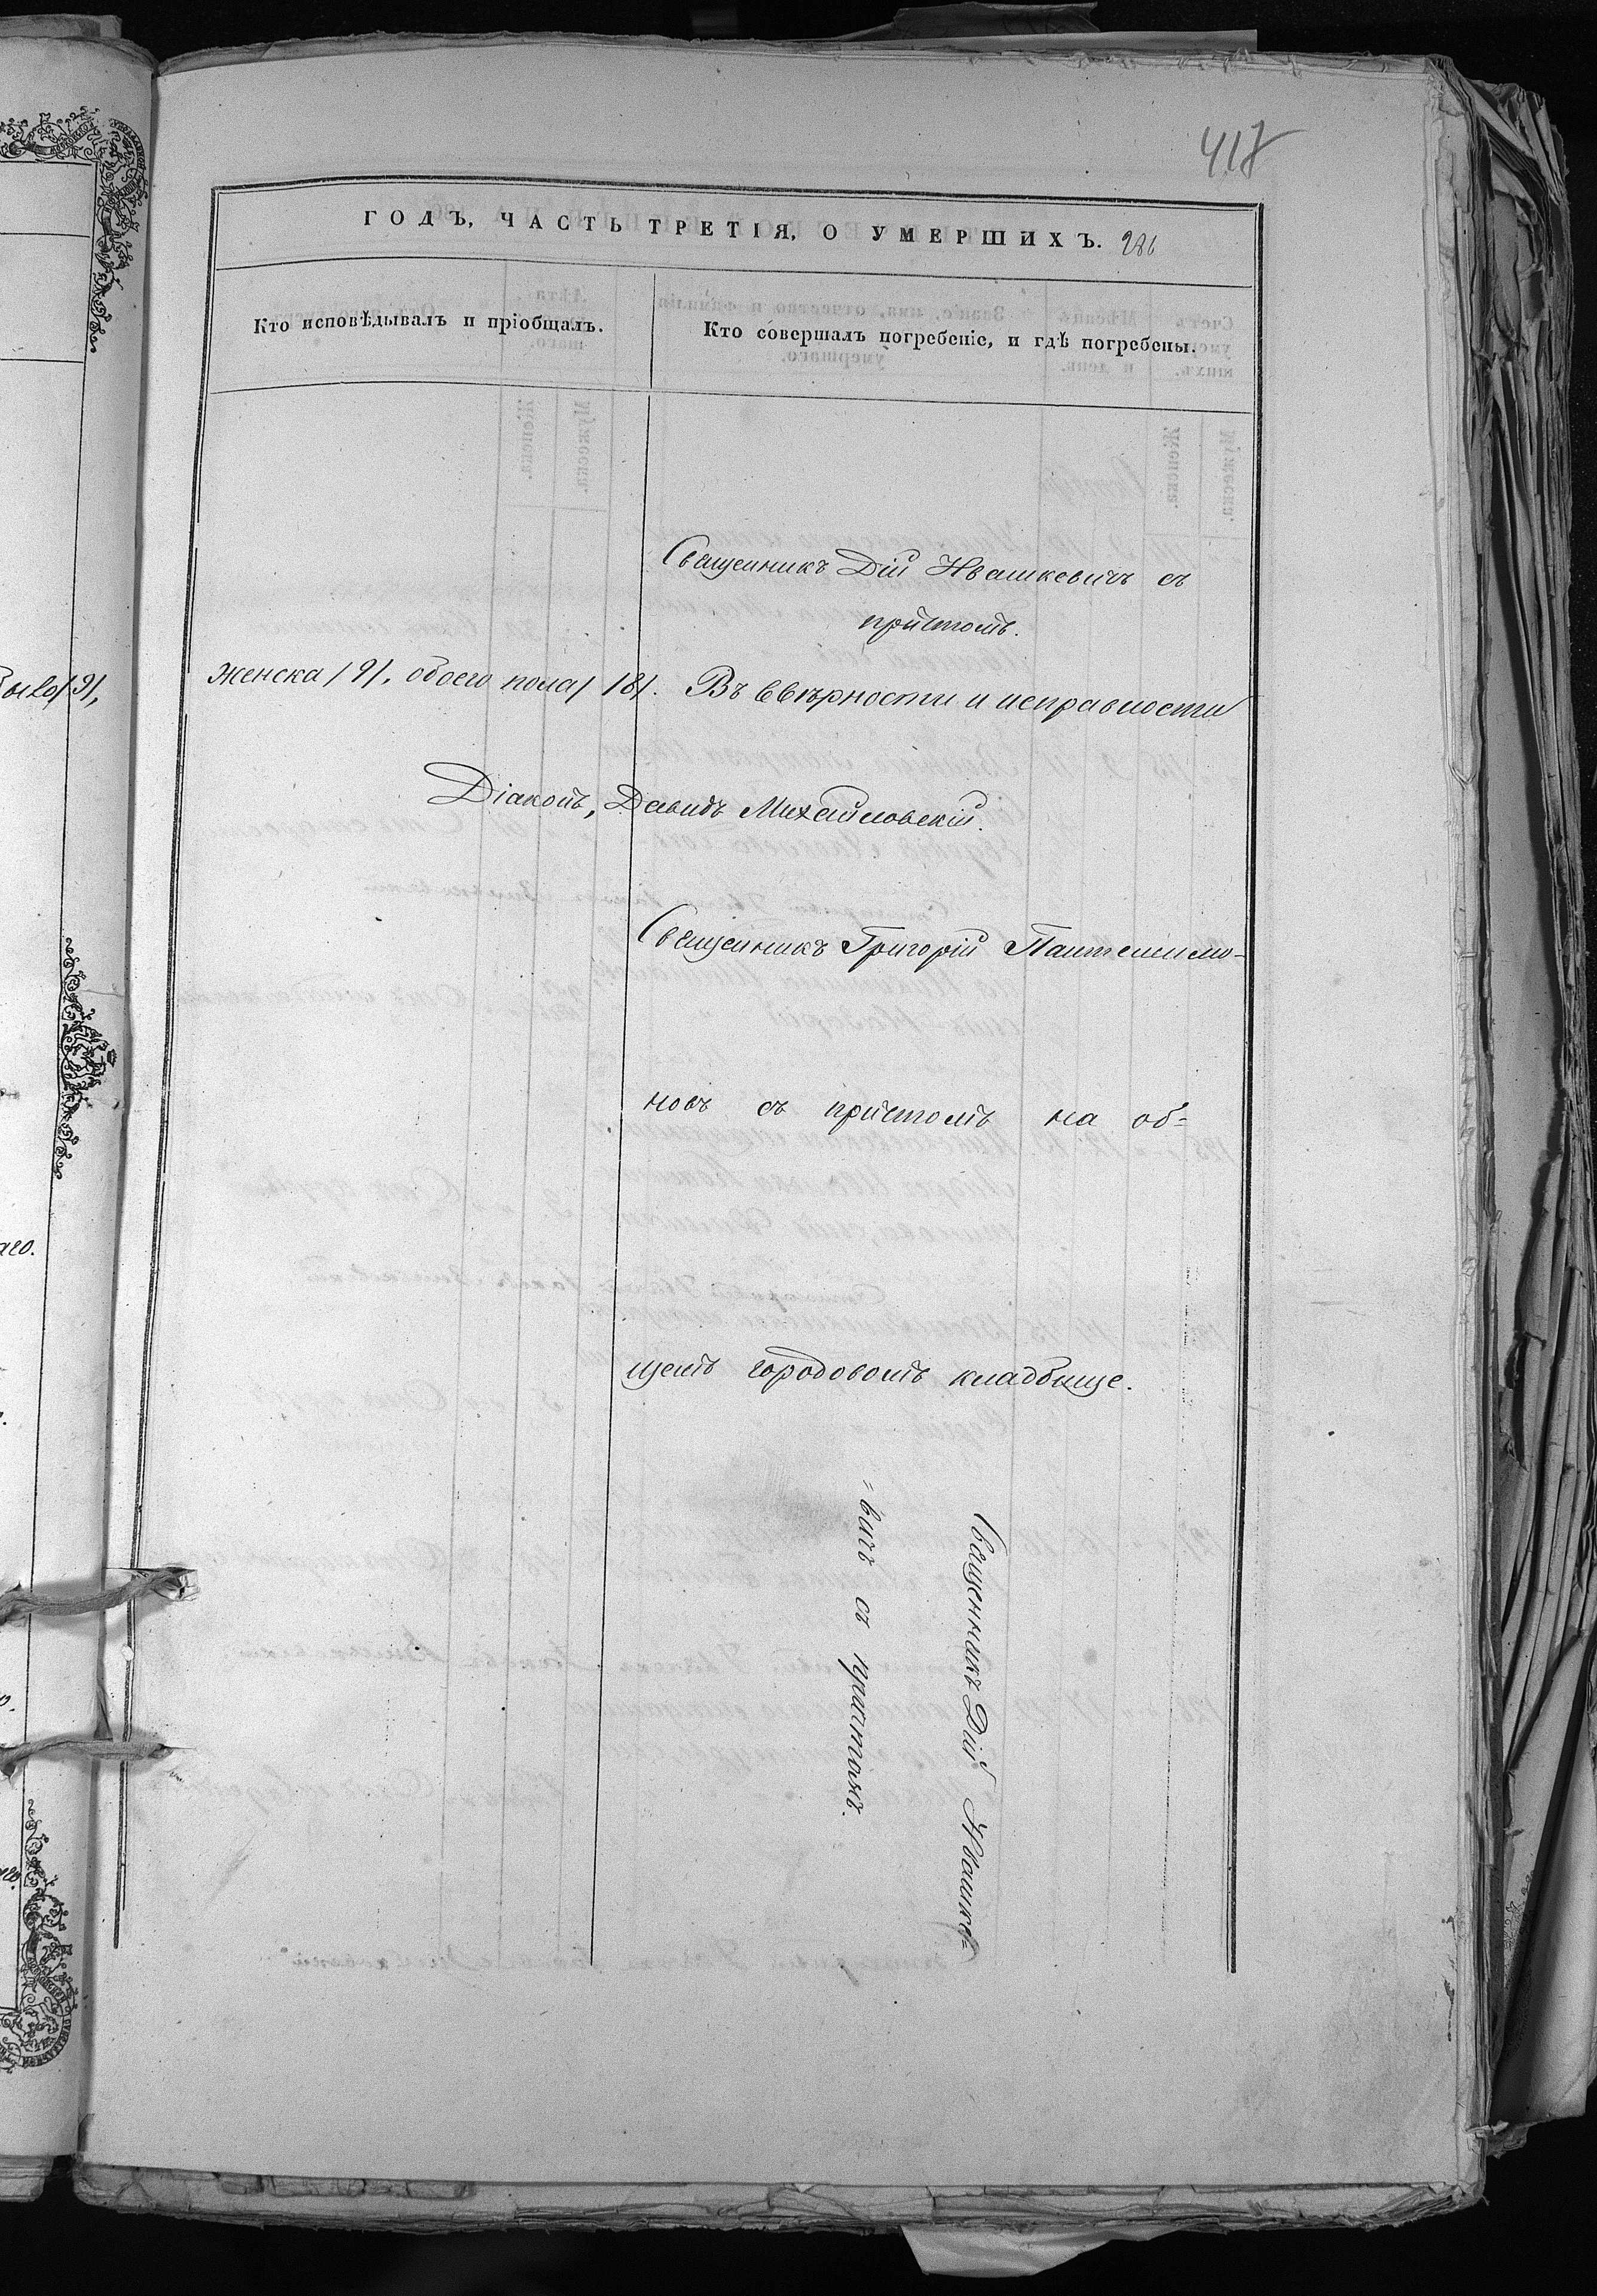 418
ГОДЪ, ЧАСТЬ ТРЕТІЯ, О УМЕРШИХЪ. 286
Кто исповѣдывалъ и пріобщалъ.
Кто совершалъ погребеніе, и гдѣ погребены.
Священникъ Дій Ивашкевичъ съ
причтомъ.
женска /9/, обоего пола /18/. Въ ввѣрности и исправности
Діаконъ, Давидъ Михайловскій.
Священникъ Григорій Пантелимо-
новъ съ причтомъ на об-
щемъ городовомъ кладбище.
Священникъ Дій Ивашке-
вичъ съ причтомъ.